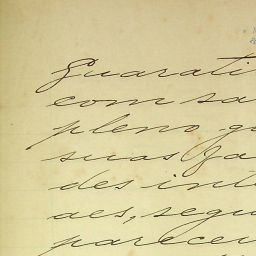 Guarati
com sa
pleno go
suas fa
des inte
aes, segu
parecer